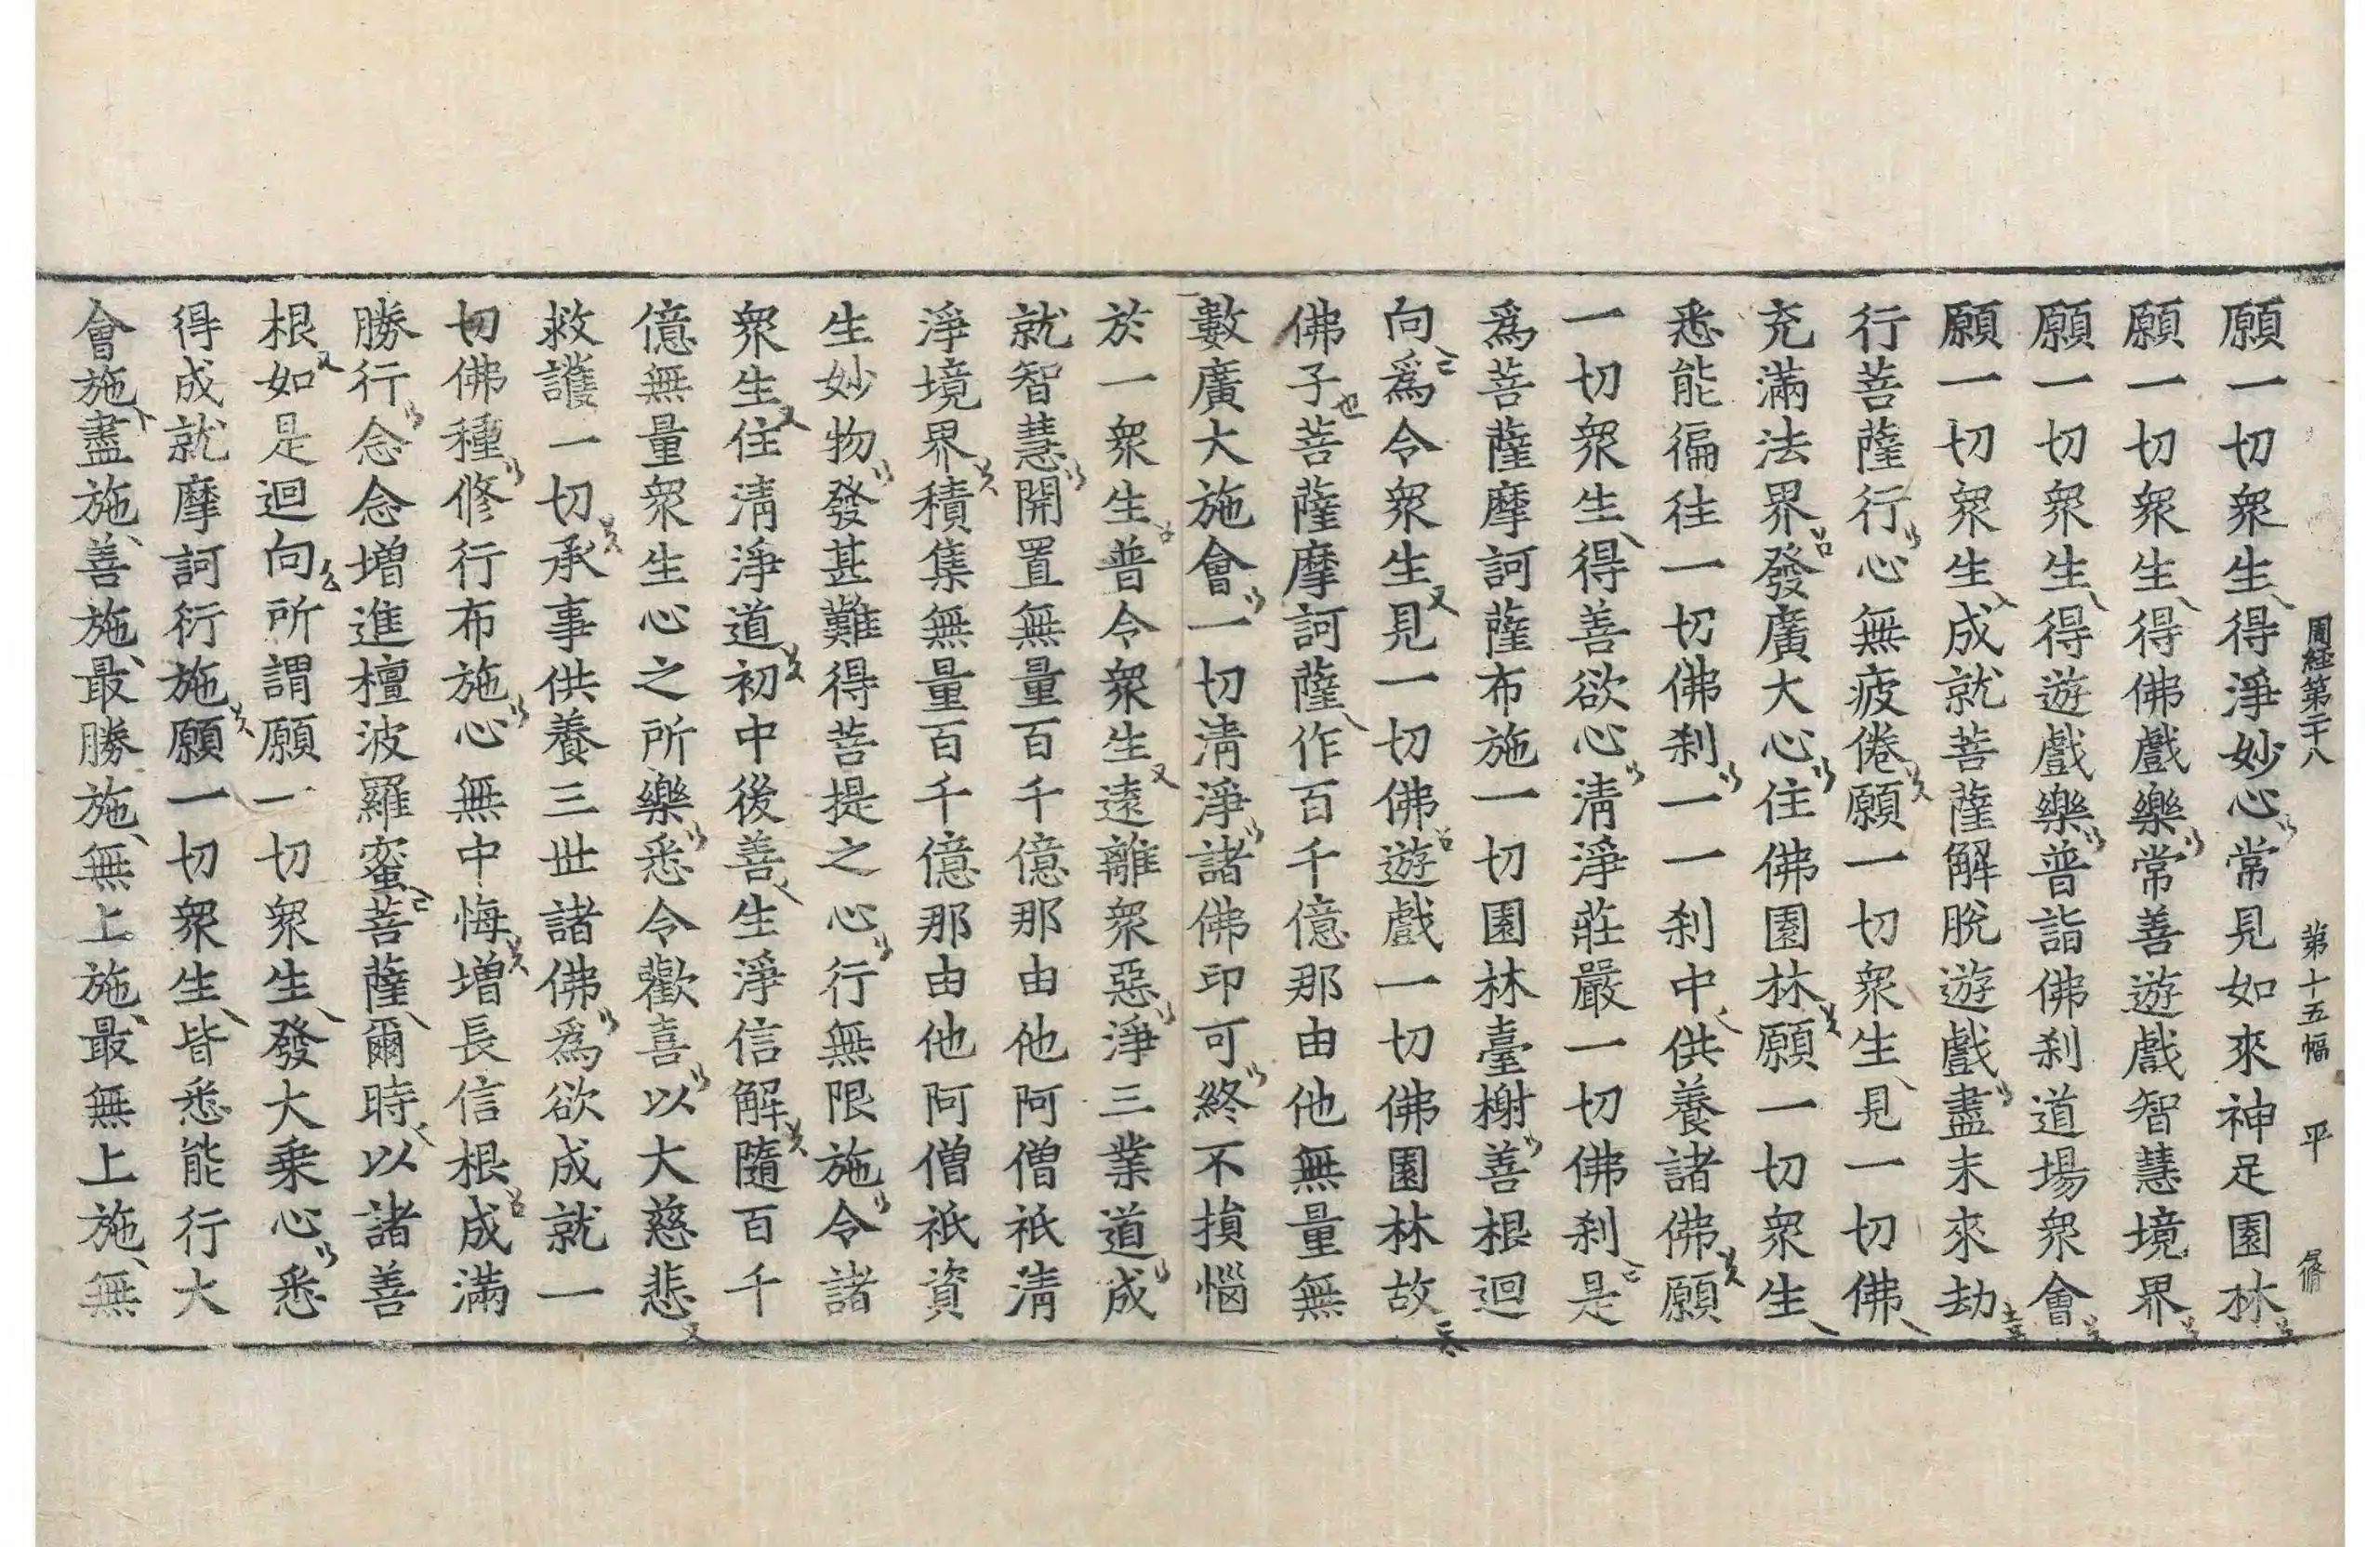 周経第二十八 第十五幅 平
願一切衆生得淨妙心常見如來神足園林
願一切衆生得佛戲樂常善遊戲智慧境界
願一切衆生得遊戲樂普詣佛刹道場衆會
願一切衆生成就菩薩解脫遊戲盡未來劫
行菩薩行心無疲倦願一切衆生見一切佛
充滿法界發廣大心住佛園林願一切衆生
悉能徧往一切佛刹一一刹中供養諸佛願
一切衆生得善欲心清淨莊嚴一切佛刹是
爲菩薩摩訶薩布施一切園林臺榭善根迴
向爲令衆生見一切佛遊戲一切佛園林故
佛子菩薩摩訶薩作百千億那由他無量無
數廣大施會一切清淨諸佛印可終不損惱
於一衆生普令衆生遠離衆惡淨三業道成
就智慧開置無量百千億那由他阿僧祇清
淨境界積集無量百千億那由他阿僧祇資
生妙物發甚難得菩提之心行無限施令諸
衆生住清淨道初中後善生淨信解隨百千
億無量衆生心之所樂悉令歡喜以大慈悲
救護一切承事供養三世諸佛爲欲成就一
切佛種修行布施心無中悔增長信根成滿
勝行念念增進檀波羅蜜菩薩爾時以諸善
根如是迴向所謂願一切衆生發大乗心悉
得成就摩訶衍施願一切衆生皆悉能行大
會施盡施善施最勝施無上施最無上施無